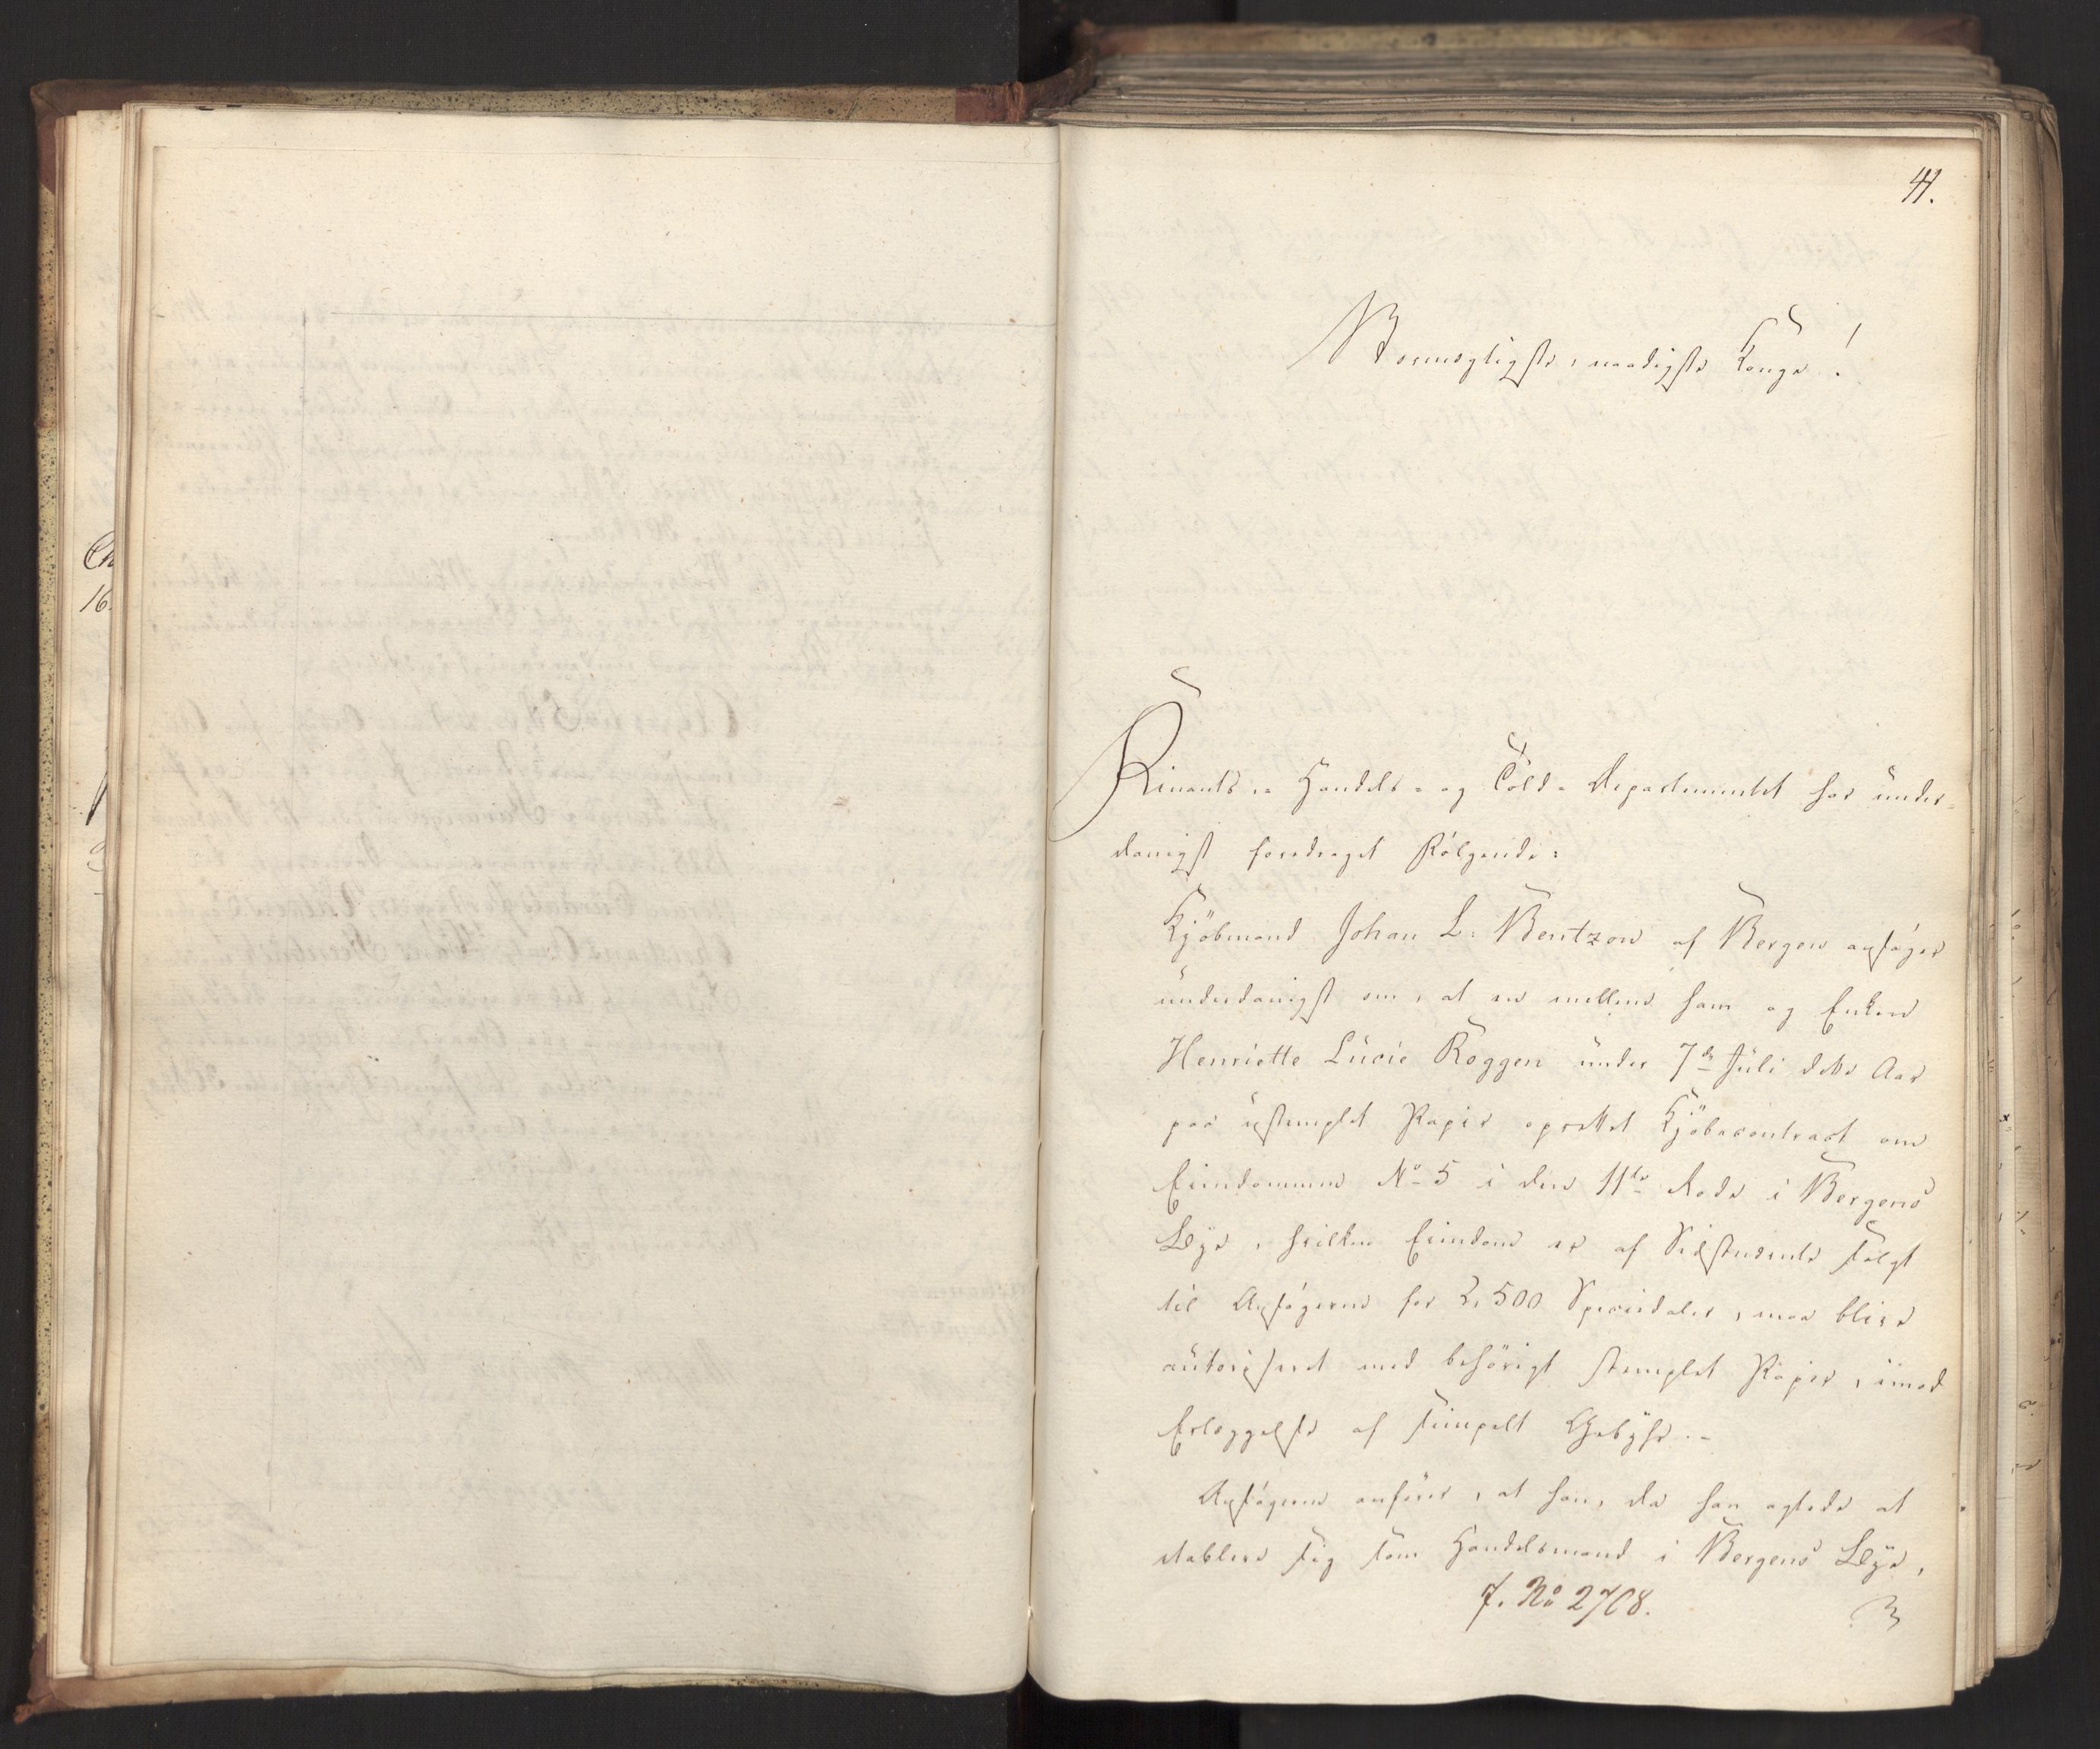 41.
Stormægtigste, naadigste Konge!
Finants-, Handels- og Told-Departementet har under-
danigst foredraget Følgende:
Kjöbmand Johan L: Bentzon af Bergen ansøger
underdanigst om, at en mellem ham og Enken
Henriette Lucie Roggen under 7de Juli dette Aar
paa ustemplet Papir oprettet Kjöbecontract om
Eiendommen No 5 i den 11te Rode i Bergens
Bye, hvilken Eiendom er af Sidstnævnte solgt
til Ansøgeren for 2,500 Speciedaler, maa blive
autoriseret med behörigt stemplet Papir, imod
Erlæggelse af simpelt Gebyhr.-
Ansøgeren anförer, at han, da han agtede at
etablere sig som Handelsmand i Bergens Bye,
J. No 2708.
Ch
16.